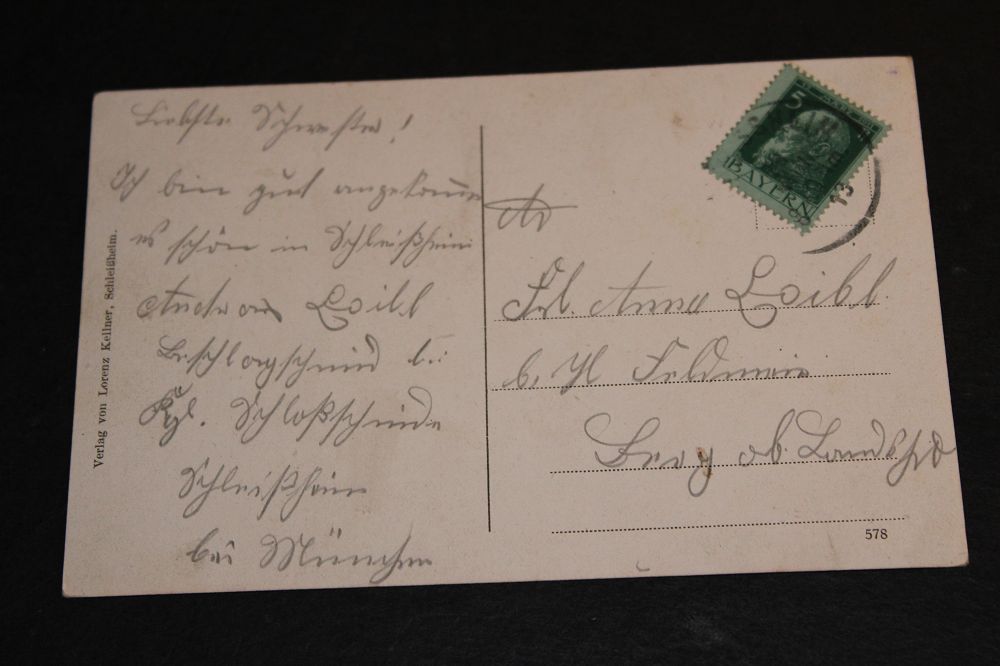 Liebste Schwester!
Ich bin gut angekommen
es schön in Schleißheim
Andreas Loibl
Beschlagschmied b.
Kgl. Schloßschmiede
Schleißheim
bei München
Verlag von Lorenz Kellner, Schleißheim.
An
Frl. Anna Loibl.
b. Feldmeier
Berg ob. Landshut
578
5
BAYERN
13